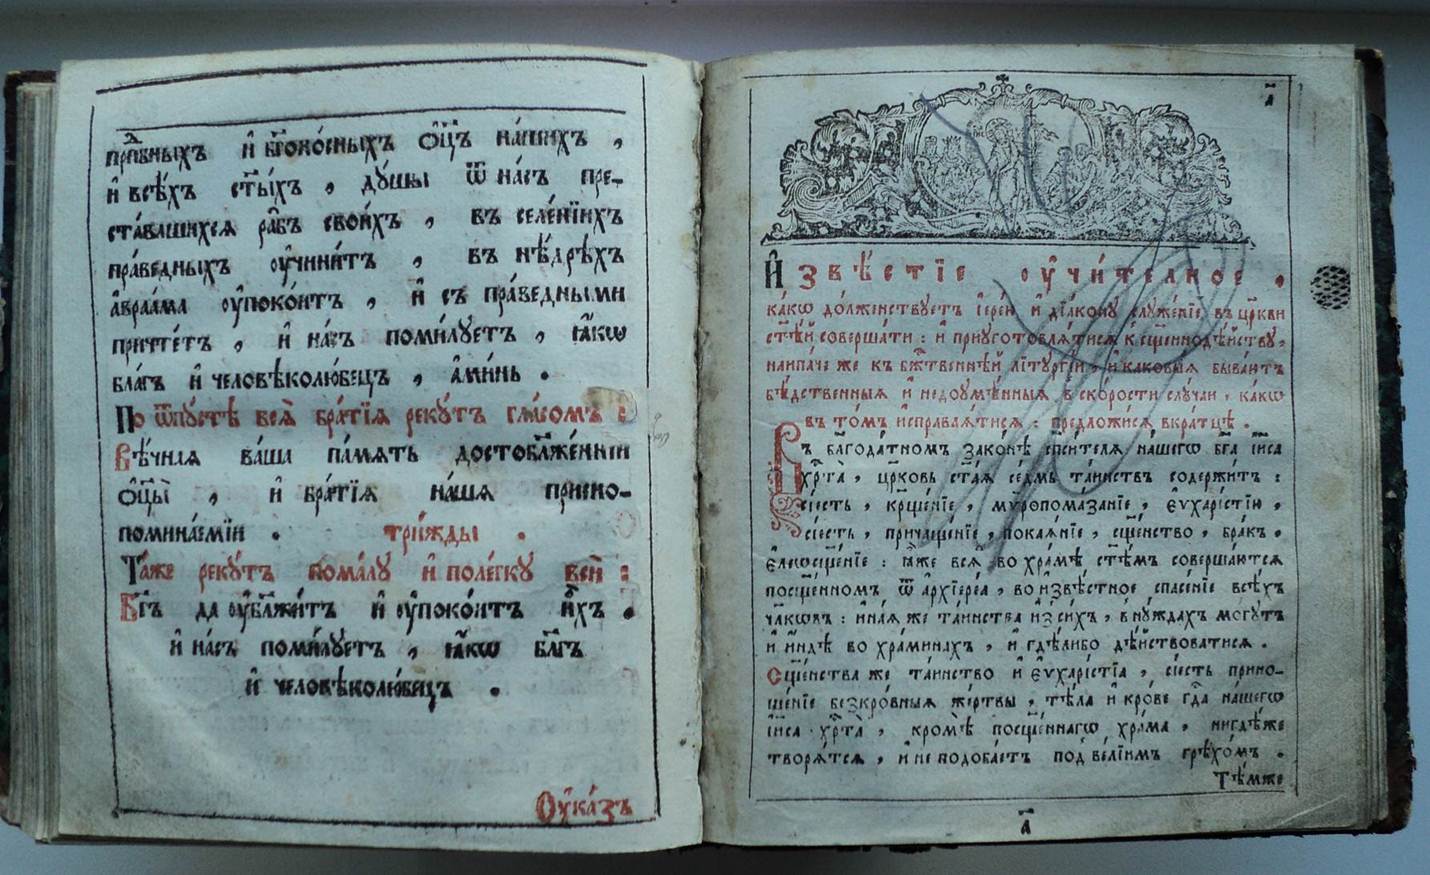 прⷣбныхъ и҆ бг҃оно́сныхъ ѻ҆ц҃ъ на́шихъ ,
и҆ всѣ́хъ ст҃ы́хъ , дꙋ́шы ѿ на́съ пре-
ста́вльшихсѧ ра̑бъ свои́хъ , въ селе́нїихъ
пра́ведныхъ ᲂу҆чини́тъ , въ нѣ́дрѣхъ
а҆враа́ма ᲂу҆поко́итъ , и҆ съ пра́ведными
причте́тъ , и҆ на́съ поми́лꙋетъ , ꙗ҆́кѡ
бл҃гъ и҆ человѣколю́бецъ , а҆ми́нь .
По ѿпꙋ́стѣ всѧ̀ бра́тїѧ рекꙋ́тъ гла́сомъ :
Вѣ́чнаѧ ва́ша па́мѧть достобл҃же́ннїи
ѻ҆ц҃ы̀ , и҆ бра́тїѧ на́шѧ присно-
помина́емїи . три́жды .
Та́же рекꙋ́тъ пома́лꙋ и҆ поле́гкꙋ всѝ :
Бг҃ъ да ᲂу҆бл҃жи́тъ и҆ ᲂу҆поко́итъ и҆̀хъ .
и҆ на́съ поми́лꙋетъ , ꙗ҆́кѡ бл҃гъ
и҆ человѣколю́бецъ .
Оу҆ка́зъ
а҃
И҆звѣ́стїе ᲂу҆чи́тельное .
ка́кѡ до́лженствꙋетъ і҆ере́й и҆ дїа́конꙋ слꙋже́нїе въ цр҃кви
ст҃ѣ́й соверша́ти : и҆ приꙋготовлѧ́тисѧ к сщ҃еннодѣ́йствꙋ,
наипа́че же къ бж҃твеннѣй лїтꙋргі́и, и҆ каковы́ѧ быва́ютъ
бѣ́дственныѧ и҆ недоꙋмѣ́нныѧ в скорости слꙋ́чаи , ка́кѡ
въ то́мъ и҆справлѧ́тисѧ : предложи́сѧ вкра́тцѣ .
Въ бл҃года́тномъ зако́нѣ сп҃си́телѧ на́шегѡ бг҃а і҆и҃са
хрⷭ҇та̀ , цр҃ковь ст҃а́ѧ се́дмь та́инствъ содержи́тъ :
сі́есть , кр҃ще́нїе , мѷропома́занїе , є҆ѵхарі́стїю ,
сі́есть , причаще́нїе , покаѧ́нїе , сщ҃е́нство , бра́къ .
є҆леѡсщ҃е́нїе : ꙗ҆̀же всѧ̀ во хра́мѣ ст҃ѣ́мъ соверша́ютсѧ
посщ҃е́нномъ ѿ а҆рхїере́а , во и҆звѣ́стное спасе́нїе всѣ́хъ
чл҃кѡвъ : и҆на́ѧ же та́инства и҆з си́хъ , в нꙋ́ждахъ мо́гꙋтъ
и҆ и҆нде́ во хра́минахъ , и҆ гдѣ́либо дѣ́йствоватисѧ .
Сщ҃е́нства же та́инство и҆ є҆ѵхарі́стїа , сі́есть прино-
ше́нїе безкро́вныѧ же́ртвы , тѣ́ла и҆ кро́ве гдⷭ҇а на́шегѡ
і҆и҃са хрⷭ҇та̀ , кромѣ̀ посщ҃е́ннагѡ хра́ма , нигдѣ́же
творѧ́тсѧ , и҆ не подоба́етъ под ве́лїимъ грѣхо́мъ .
Тѣ́мже
а҃